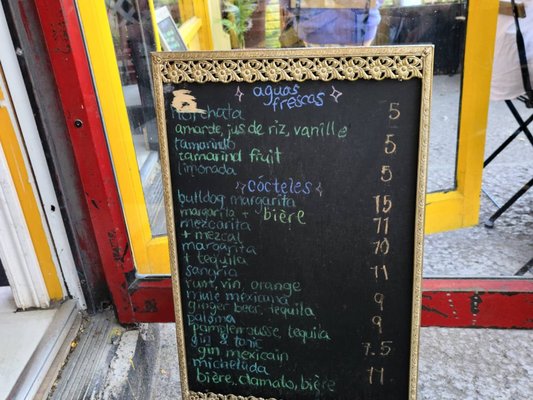 aguas
frescas
horchata 5
amande, jus de riz, vanille
tamarindo 5
tamarind fruit
limonada 5
cócteles
bulldog margarita 15
margarita + bière
mezcarita 11
+ mezcal
margarita 10
+ tequila
sangria 11
rum, vin, orange
mule mexicana 9
ginger beer, tequila
paloma 9
pamplemousse, tequila
gin & tonic 7.5
gin mexicain
michelada 11
bière, clamato, bière